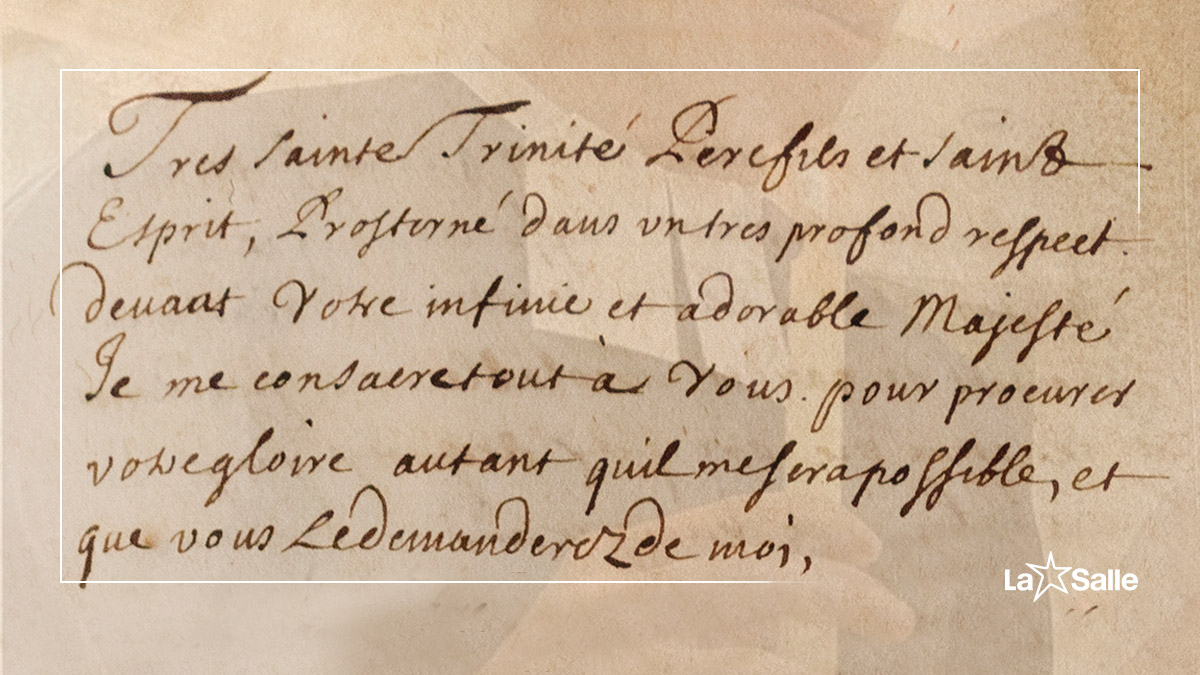 Tres sainte Trinité Pere fils et saint
Esprit, Prosterné dans vn tres profond respect.
devant Votre infinie et adorable Majesté
Je me consacre tout à Vous. pour procurer
votre gloire autant quil me sera possible, et
que vous Le demanderez de moi,
La Salle